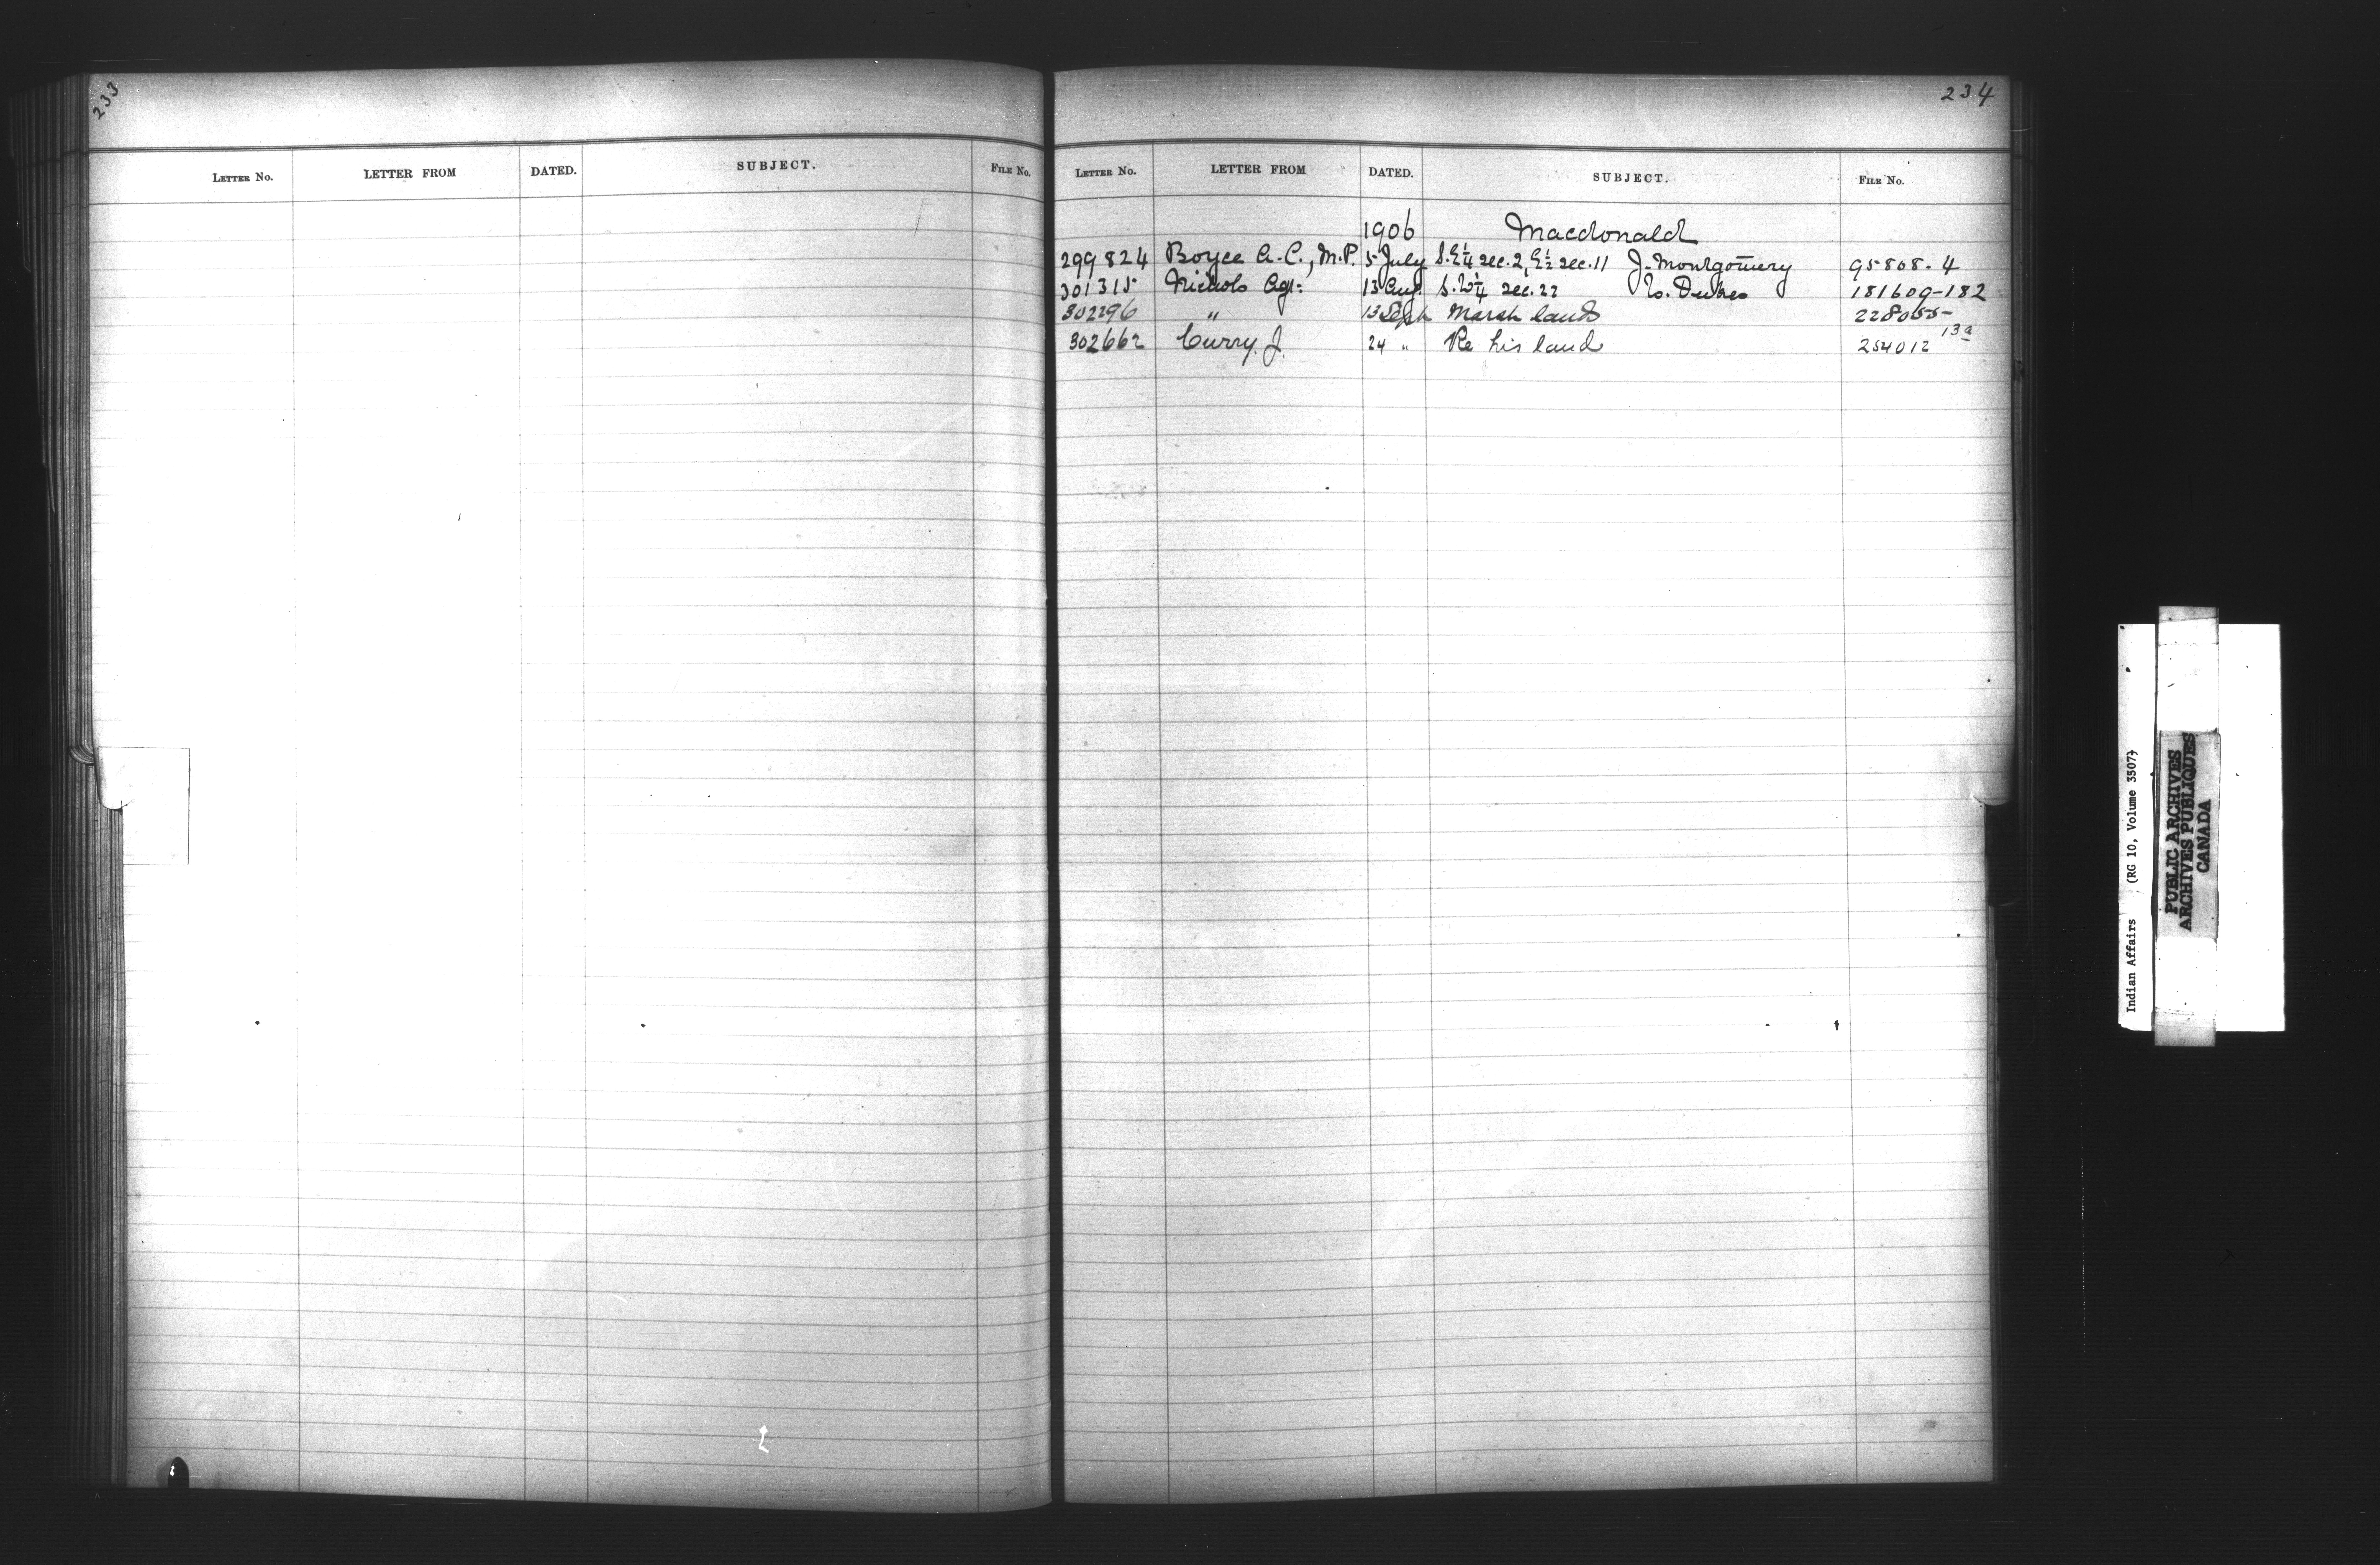 233
LETTER No. LETTER FROM DATED. SUBJECT. FILE No.
234
LETTER No. LETTER FROM DATED. SUBJECT. FILE No.
1906 Macdonald
299824 Boyce A.C., M.P. 5 July S.E¼ sec. 2, E½ sec. 11 J. Montgomery 95808-4
301315 Nichols Agt: 13 Aug. S.W¼ sec. 22 Dukes 181609-182
302296 " 13 Sept Marsh lands 228055-
302662 Curry J. 24 " Re his land 254012 13a
Indian Affairs (RG 10, Volume 3507)
PUBLIC ARCHIVES
ARCHIVES PUBLIQUES
CANADA